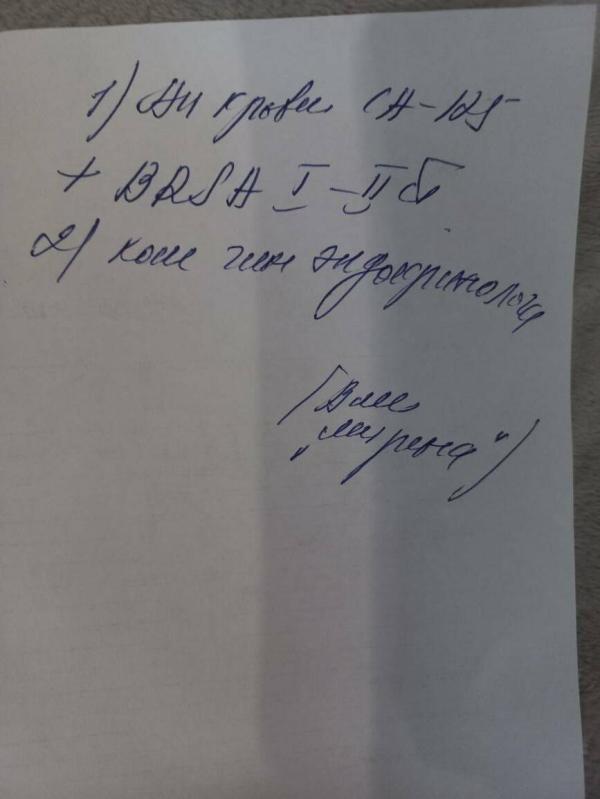 1) Ан крови СА-125
+ BRSA I-II б
2) конс гин эндокринолога
(ВМС
"Мирена")